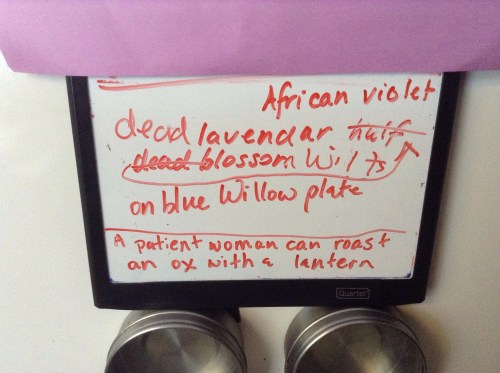 African violet
dead lavendar half
dead blossom wilts
on blue Willow plate
A patient woman can roast
an ox with a lantern
Quartet